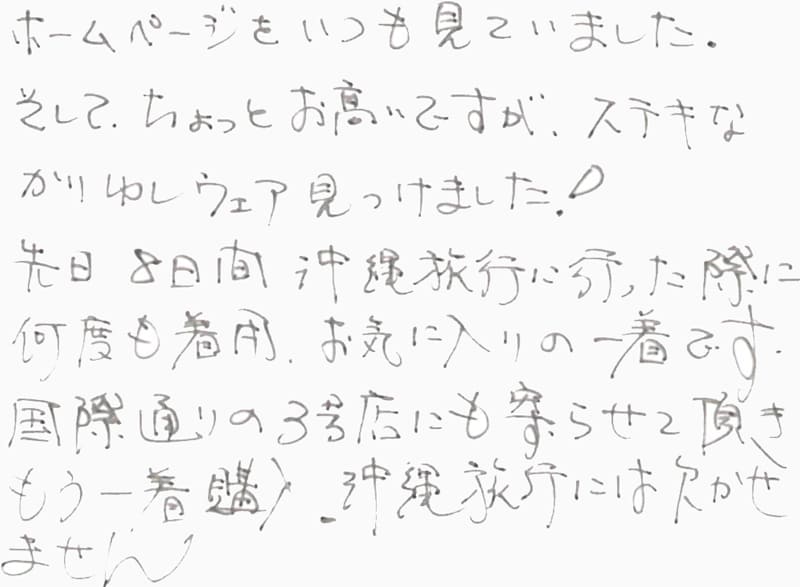 ホームページをいつも見ていました。
そして、ちょっとお高いですが、ステキな
かりゆしウェア見つけました!
先日 8日間 沖縄旅行に行った際に
何度も着用、お気に入りの一着です。
国際通りの3号店にも寄らせて頂き
もう一着購入。沖縄旅行には欠かせ
ません